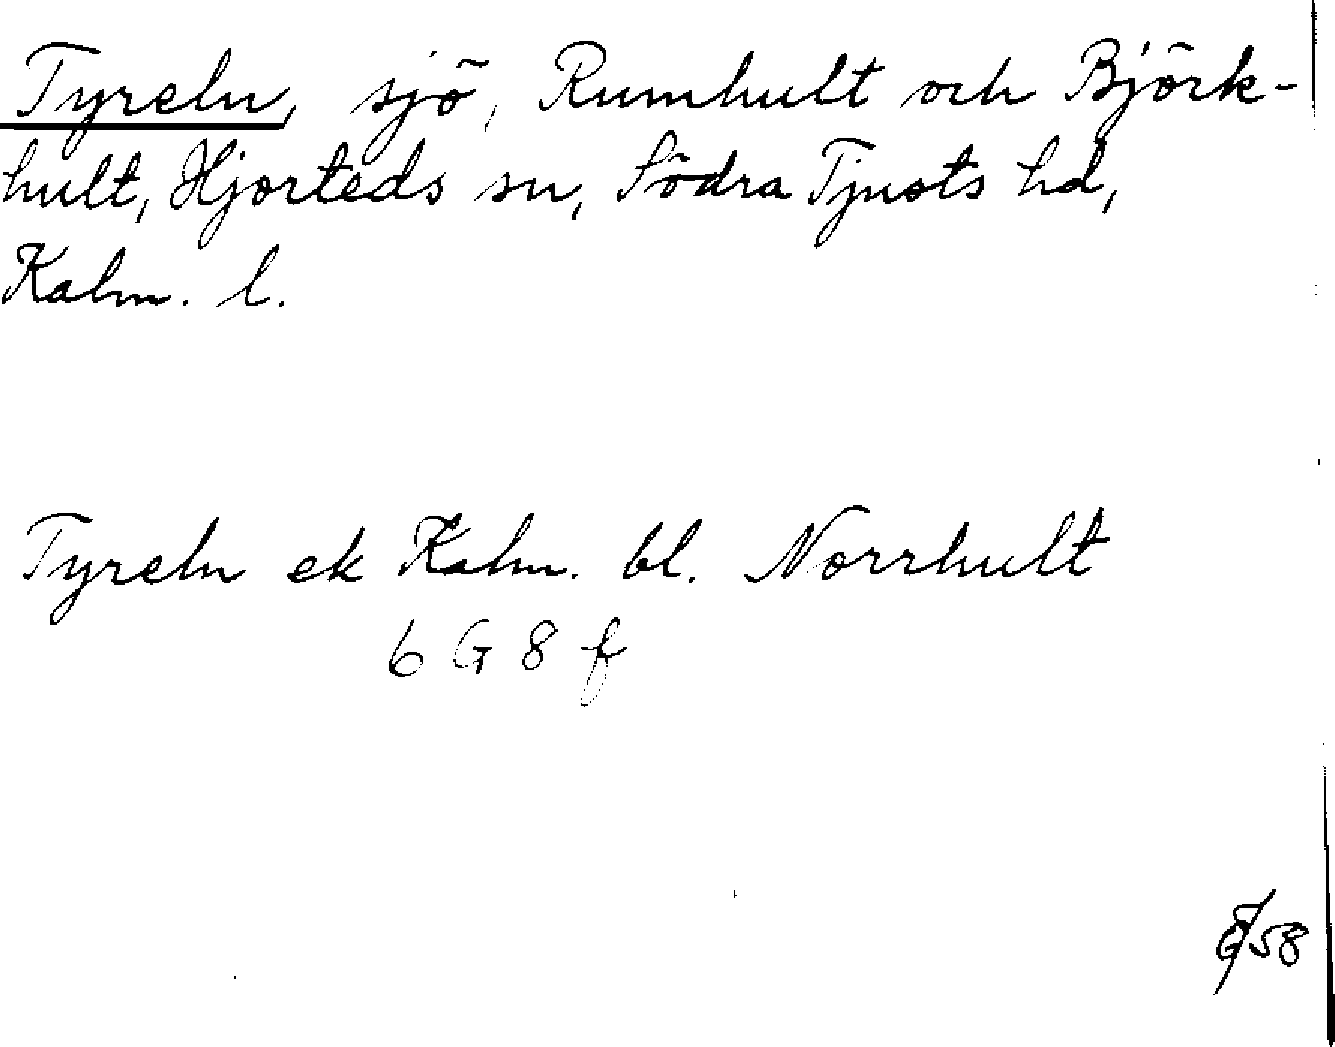 Tyreln, sjö, Rumhult och Björk-
hult, Hjorteds sn, Södra Tjusts hd,
Kalm. l.
Tyreln ek Kalm. bl. Norrhult
6 G 8 f
/58